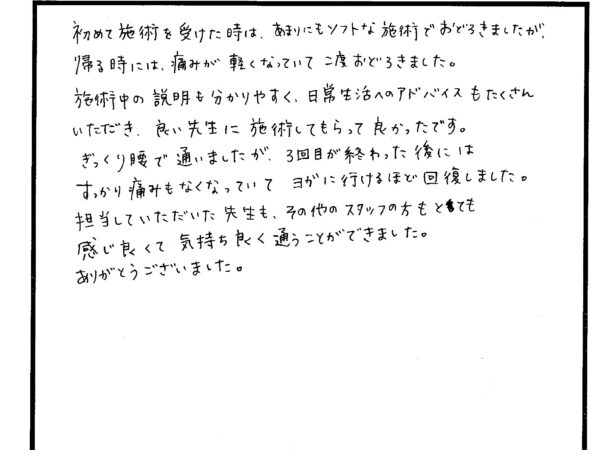 初めて施術を受けた時は、あまりにもソフトな施術でおどろきましたが、
帰る時には、痛みが軽くなっていて二度おどろきました。
施術中の説明も分かりやすく、日常生活へのアドバイスもたくさん
いただき、良い先生に施術してもらって良かったです。
ぎっくり腰で通いましたが、3回目が終わった後には
すっかり痛みもなくなっていてヨガに行けるほど回復しました。
担当していただいた先生も、その他のスタッフの方もとても
感じ良くて気持ち良く通うことができました。
ありがとうございました。